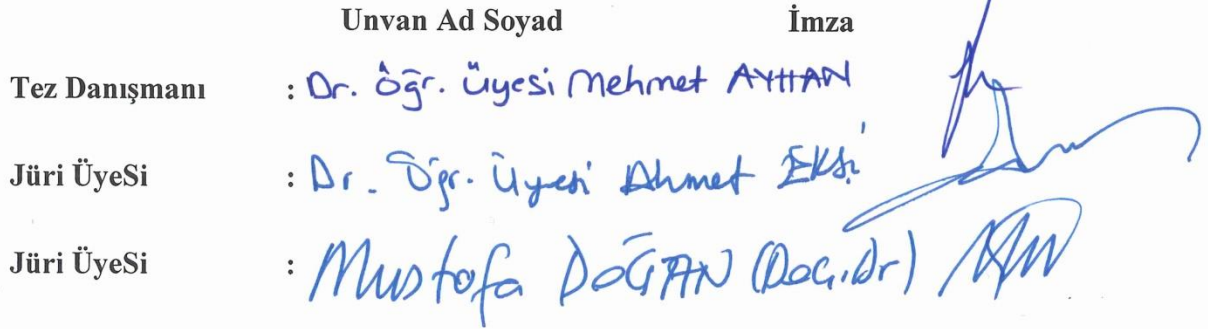 Unvan Ad Soyad İmza
Tez Danışmanı : Dr. Öğr. Üyesi Mehmet AYHAN
Jüri ÜyeSi : Dr. Öğr. Üyesi Ahmet EKŞİ
Jüri ÜyeSi : Mustafa DOĞAN (Doç.Dr)